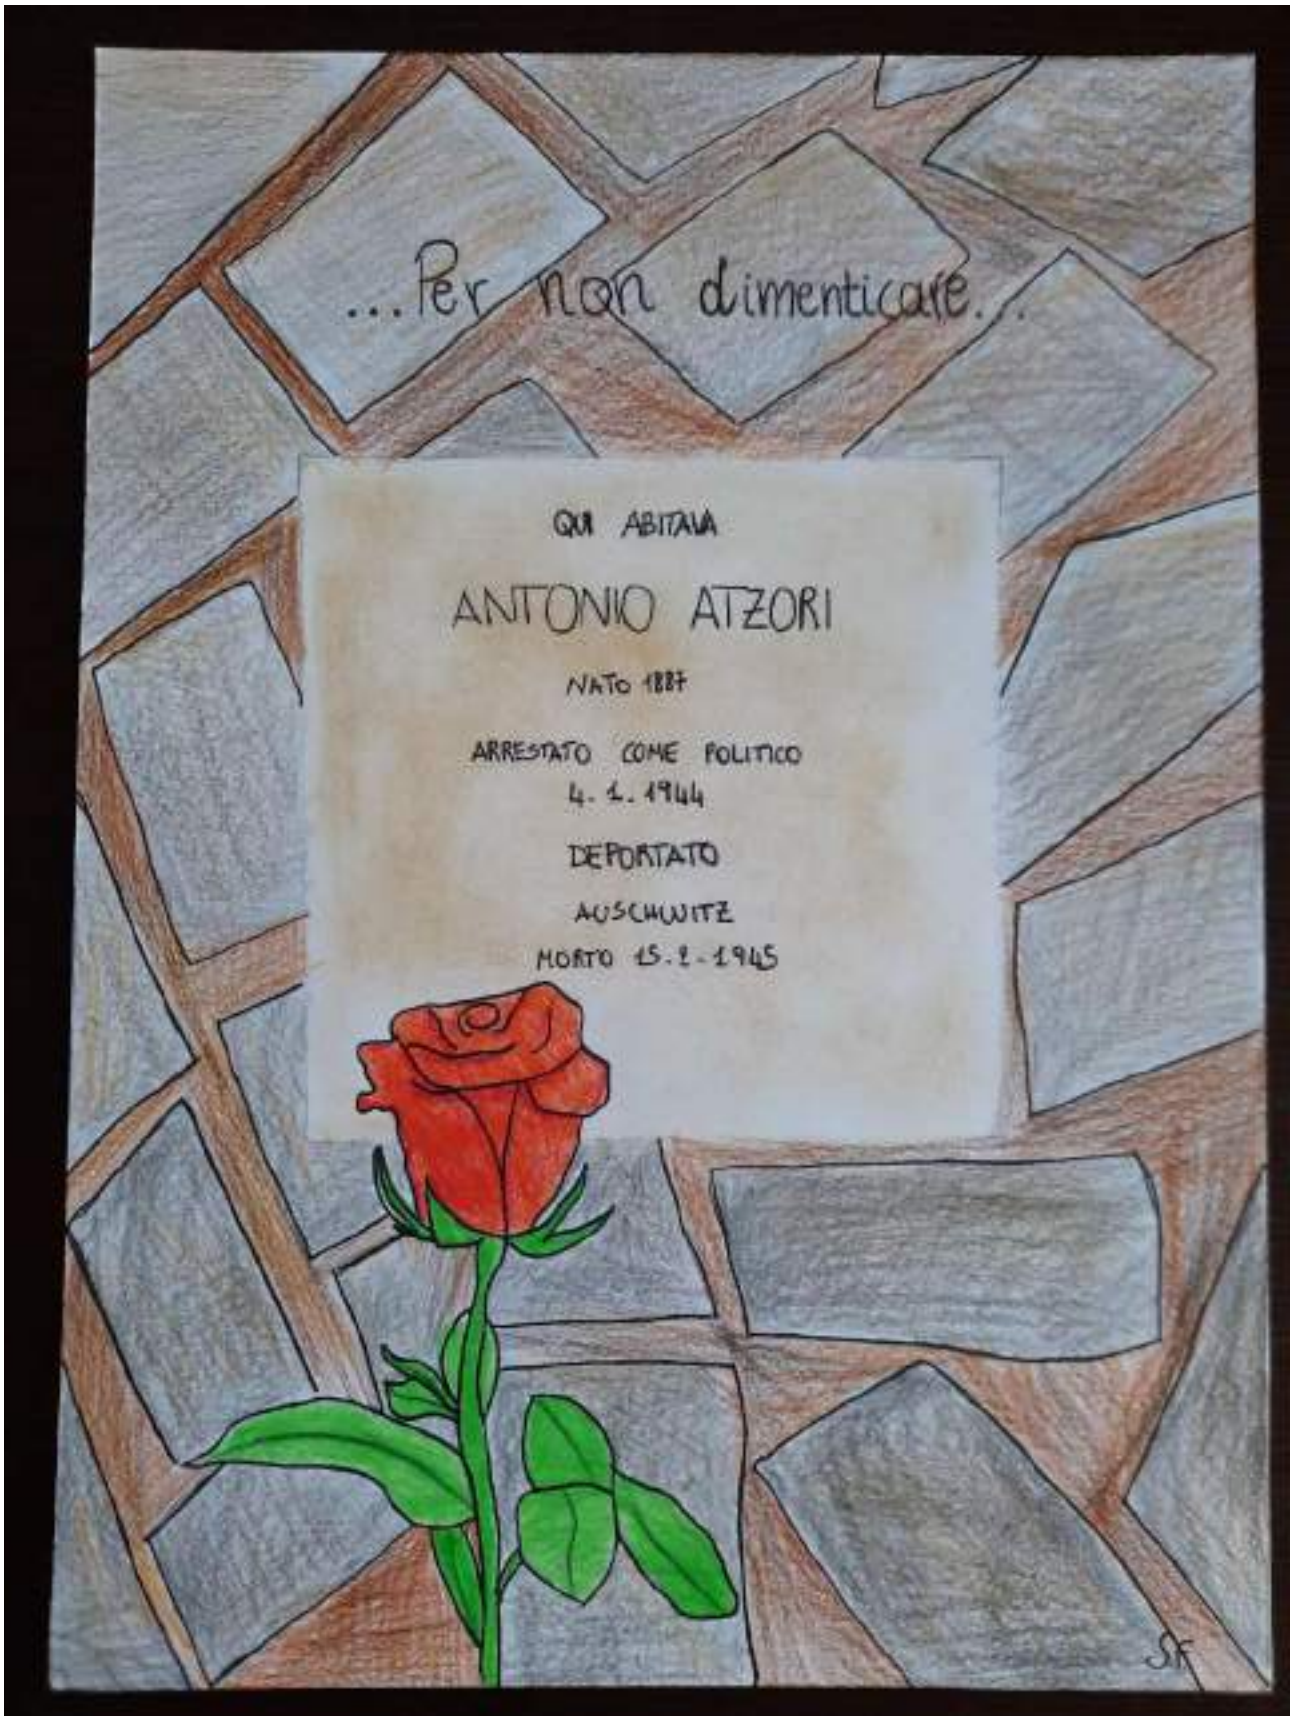 ...Per non dimenticare...
QUI ABITAVA
ANTONIO ATZORI
NATO 1887
ARRESTATO COME POLITICO
4.1.1944
DEPORTATO
AUSCHWITZ
MORTO 15.2.1945
SF